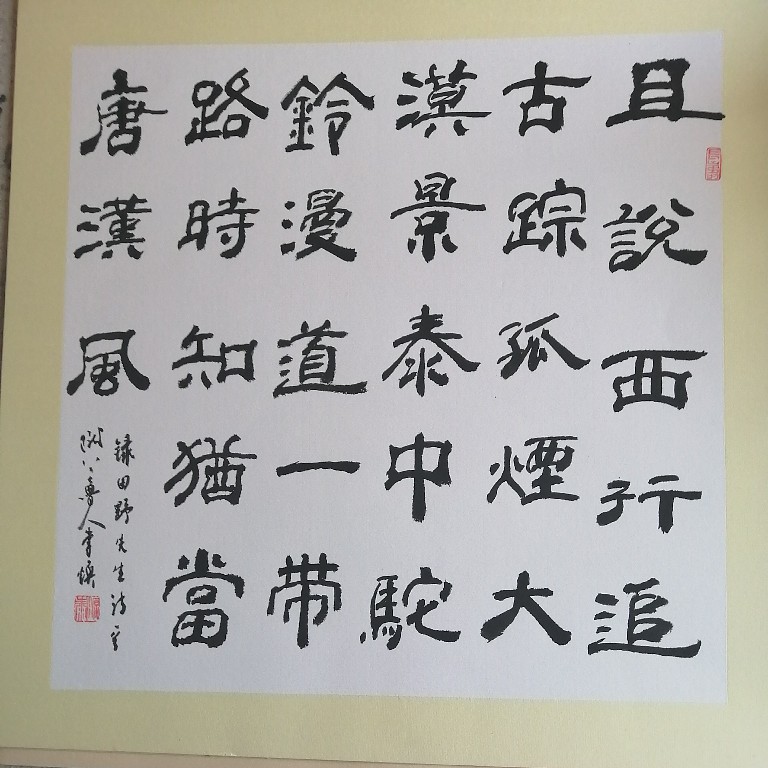 且說西行追
古踪孤煙大
漠景泰中駝
鈴漫道一带
路時知猶當
唐漢風
録田野先生诗一首
魯人李煥